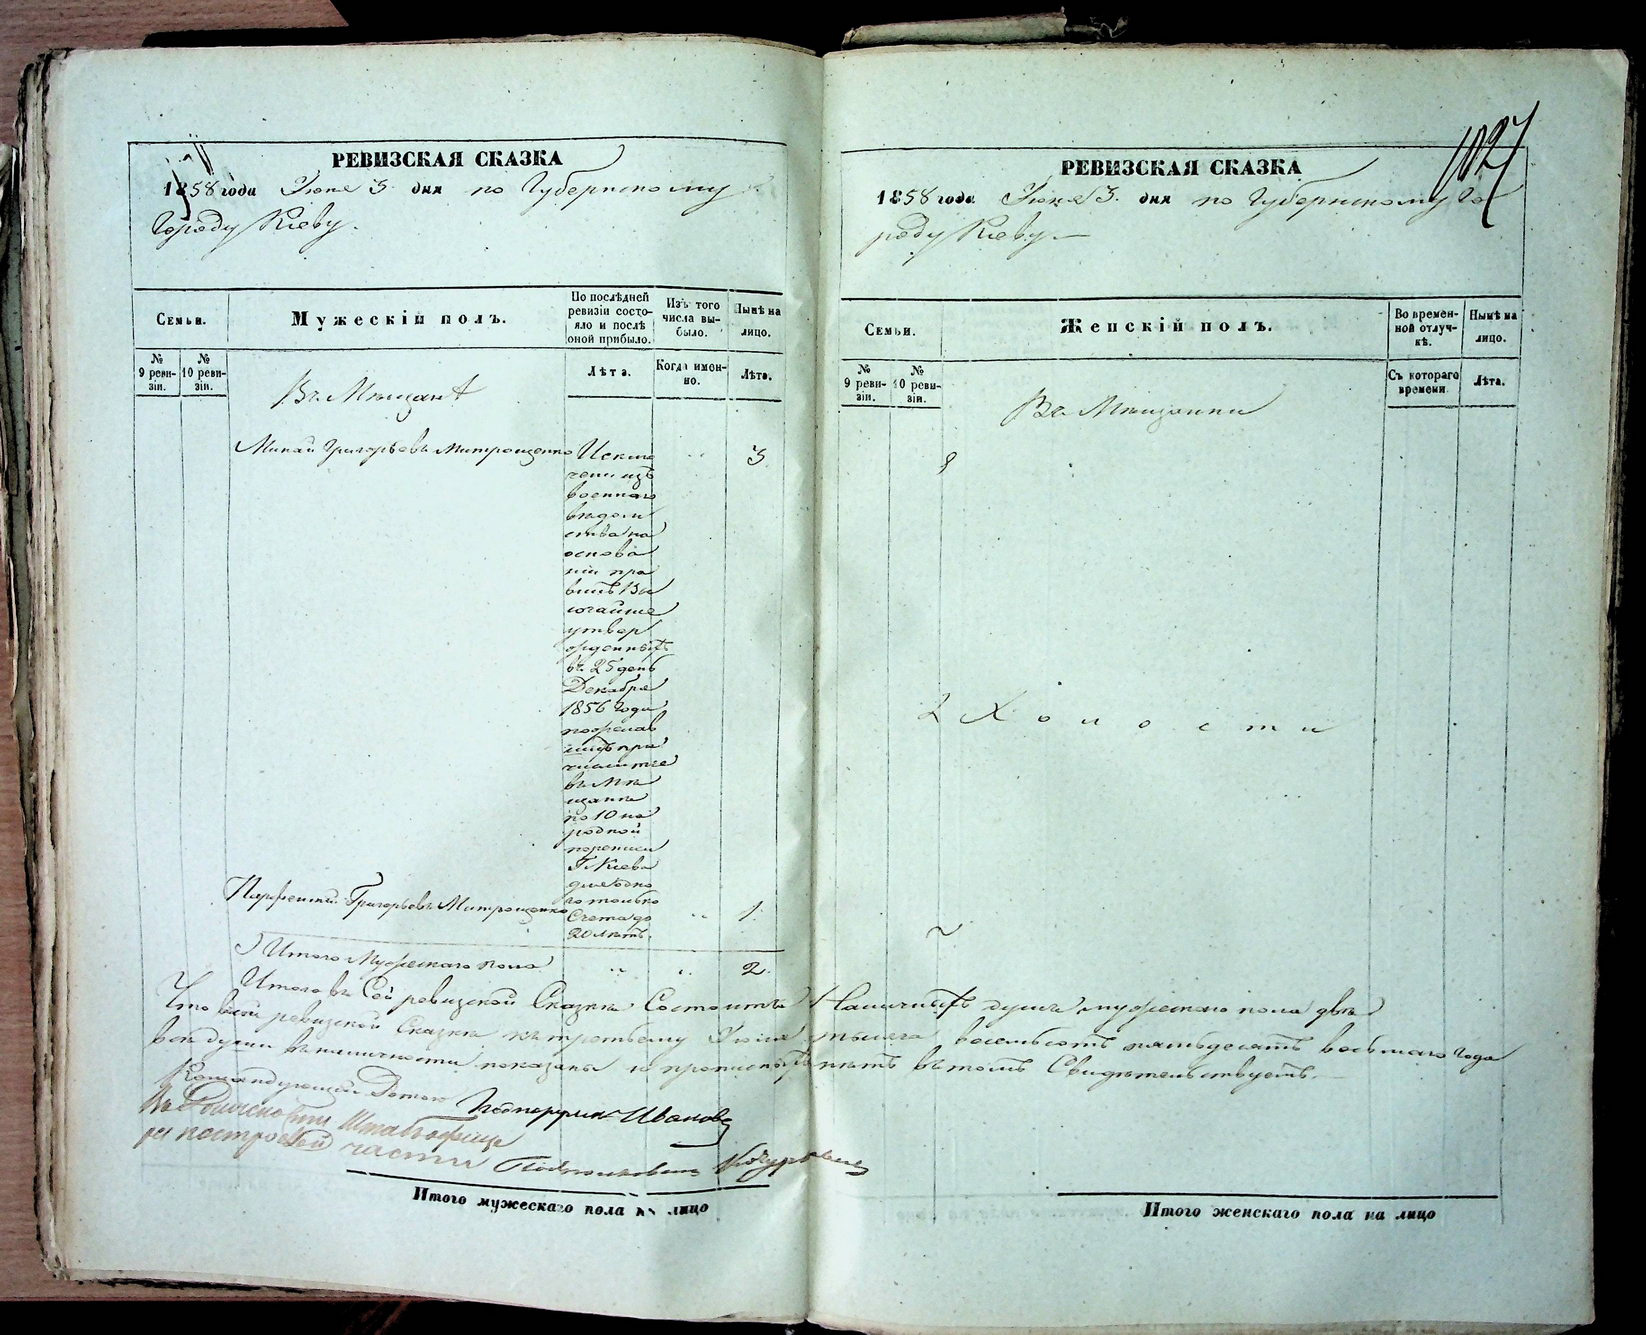 РЕВИЗСКАЯ СКАЗКА
1858 года Іюня 3. дня по Губернскому
Городу Кіеву.
Семьи.
Мужескій полъ.
По послѣдней
ревизіи состо-
яло и послѣ
оной прибыло.
Изъ того
числа вы-
было.
Нынѣ на
лицо.
№
9 реви-
зіи.
№
10 реви-
зіи.
Лѣта.
Когда имен-
но.
Лѣта.
Въ Мѣщане
Григорьевъ Митрощенко
3
Исклю
чены изъ
военнаго
вѣдом
ства на
основа
ніи пра
вилъ Вы
сочайше
утвер
жденныхъ
въ 25 день
Декабря
1856 года
при
въ Мѣ
щане
по 10 на
родной
переписи
Г. Кіева
20 лѣтъ.
Григорьевъ Митрощенко
1.
Итого Мужескаго пола
2.
Итого въ Сей ревизской Сказкѣ Состоитъ Наличныхъ душъ мужескаго пола двѣ
Что въ сей ревизской Сказкѣ къ третьему Іюня тысяча восемьсотъ пятьдесятъ восьмаго года
всѣ души въ наличности показаны и прописныхъ нѣтъ въ томъ Свидѣтельствуетъ.
Командующій Ротою Подпоручикъ Ивановъ
части Подполковникъ
Итого мужескаго пола на лицо
1027
РЕВИЗСКАЯ СКАЗКА
1858 года Іюня 3. дня по Губернскому Го
роду Кіеву.
Семьи.
Женскій полъ.
Во времен-
ной отлуч-
кѣ.
Нынѣ на
лицо.
№
9 реви-
зіи.
№
10 реви-
зіи.
Съ котораго
времени.
Лѣта.
Въ Мѣщанки
Холосты
Итого женскаго пола на лицо